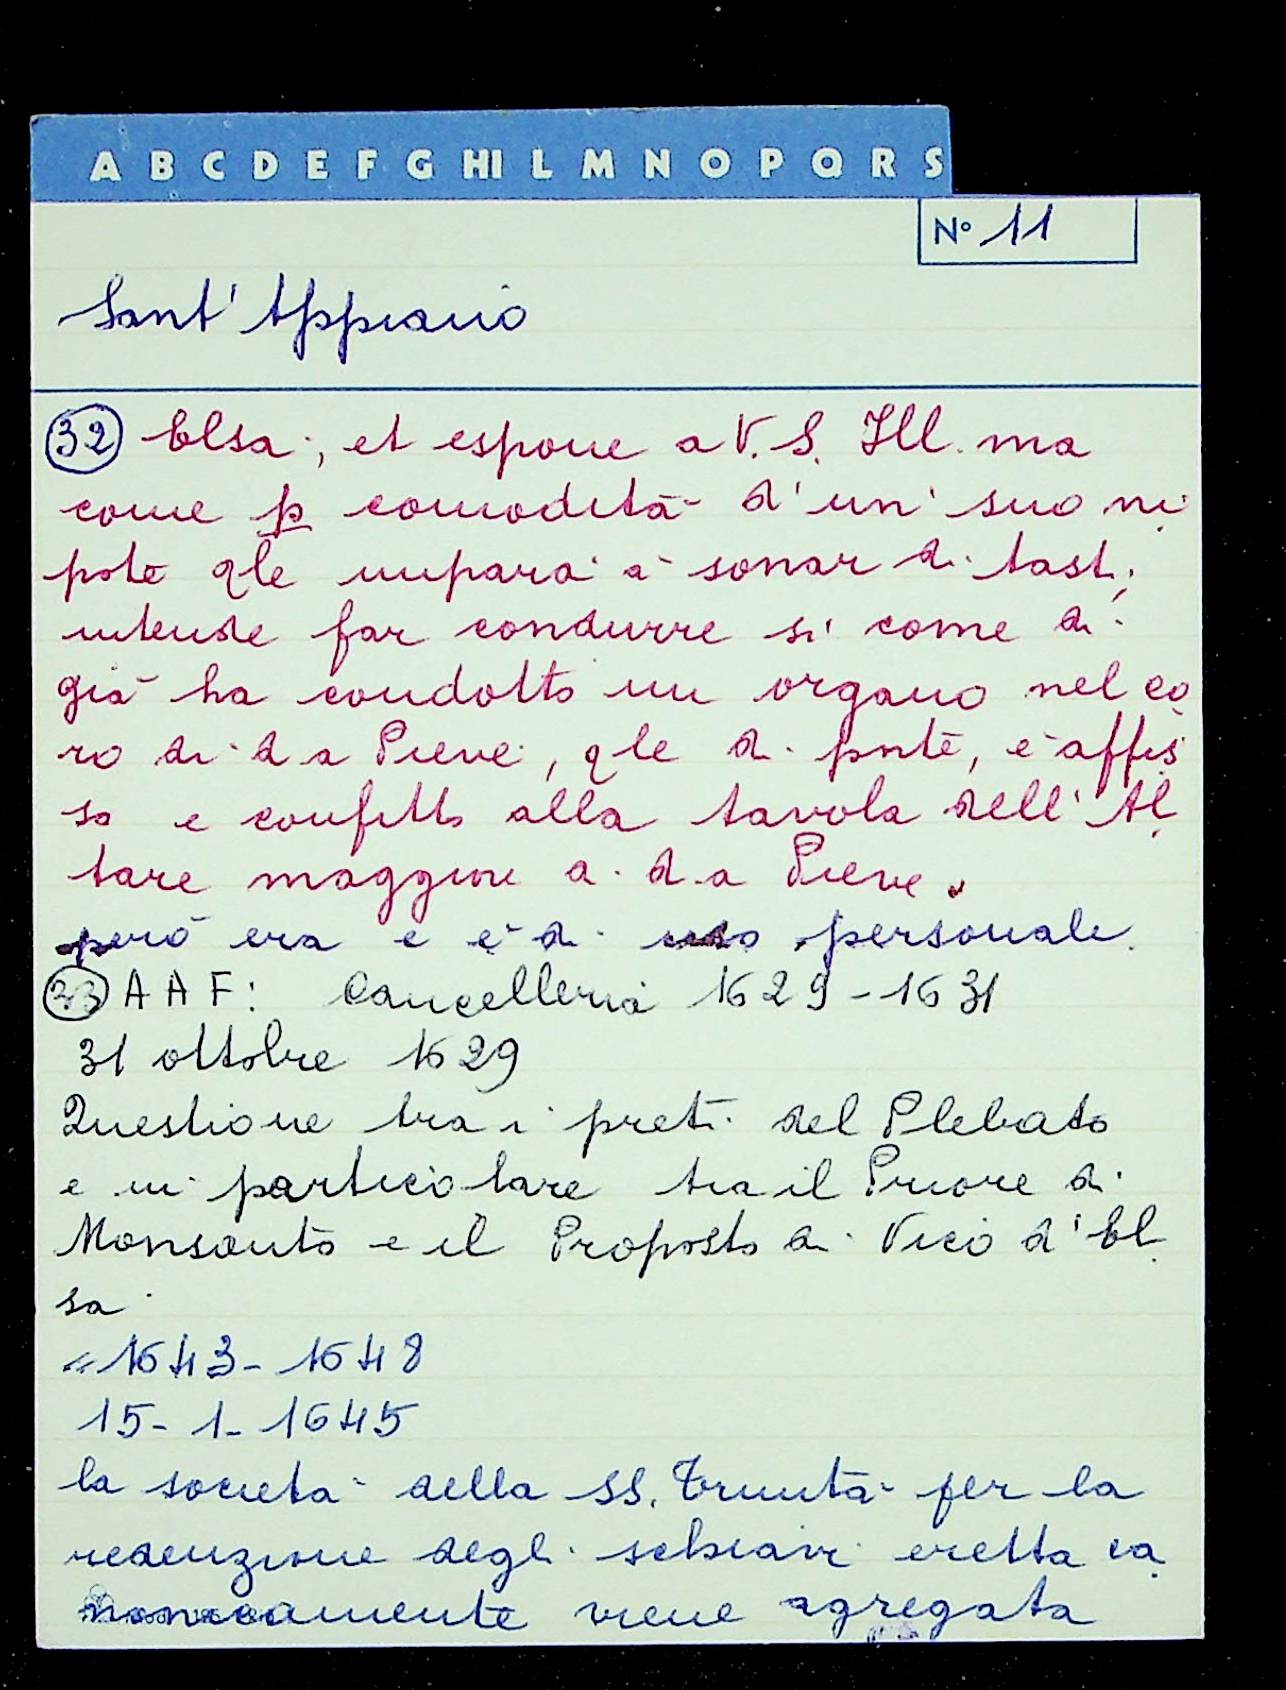 A B C D E F G HI L M N O P Q R S
N° 11
Sant'Appiano
32 Elsa; et espone a V.S. Ill.ma
come p comodità d'un suo ni
pote qle impara à sonar di tasti,
intende far condurre si come di
già ha condotto un organo nel co
ro di da Pieve, qle di pnte, è affis
so e confitto alla tavola dell'Al
tare maggiore a. d.a Pieve.
però era e è di uso personale.
33 A A F: Cancelleria 1629-1631
31 ottobre 1629
Questione tra i preti del Plebato
e in particolare tra il Priore di
Monsanto e il Proposto di Vico d'El
sa.
" 1643-1648
15-1-1645
la società della SS. Trinità per la
redenzione degli schiavi eretta ca
nonicamente viene agregata